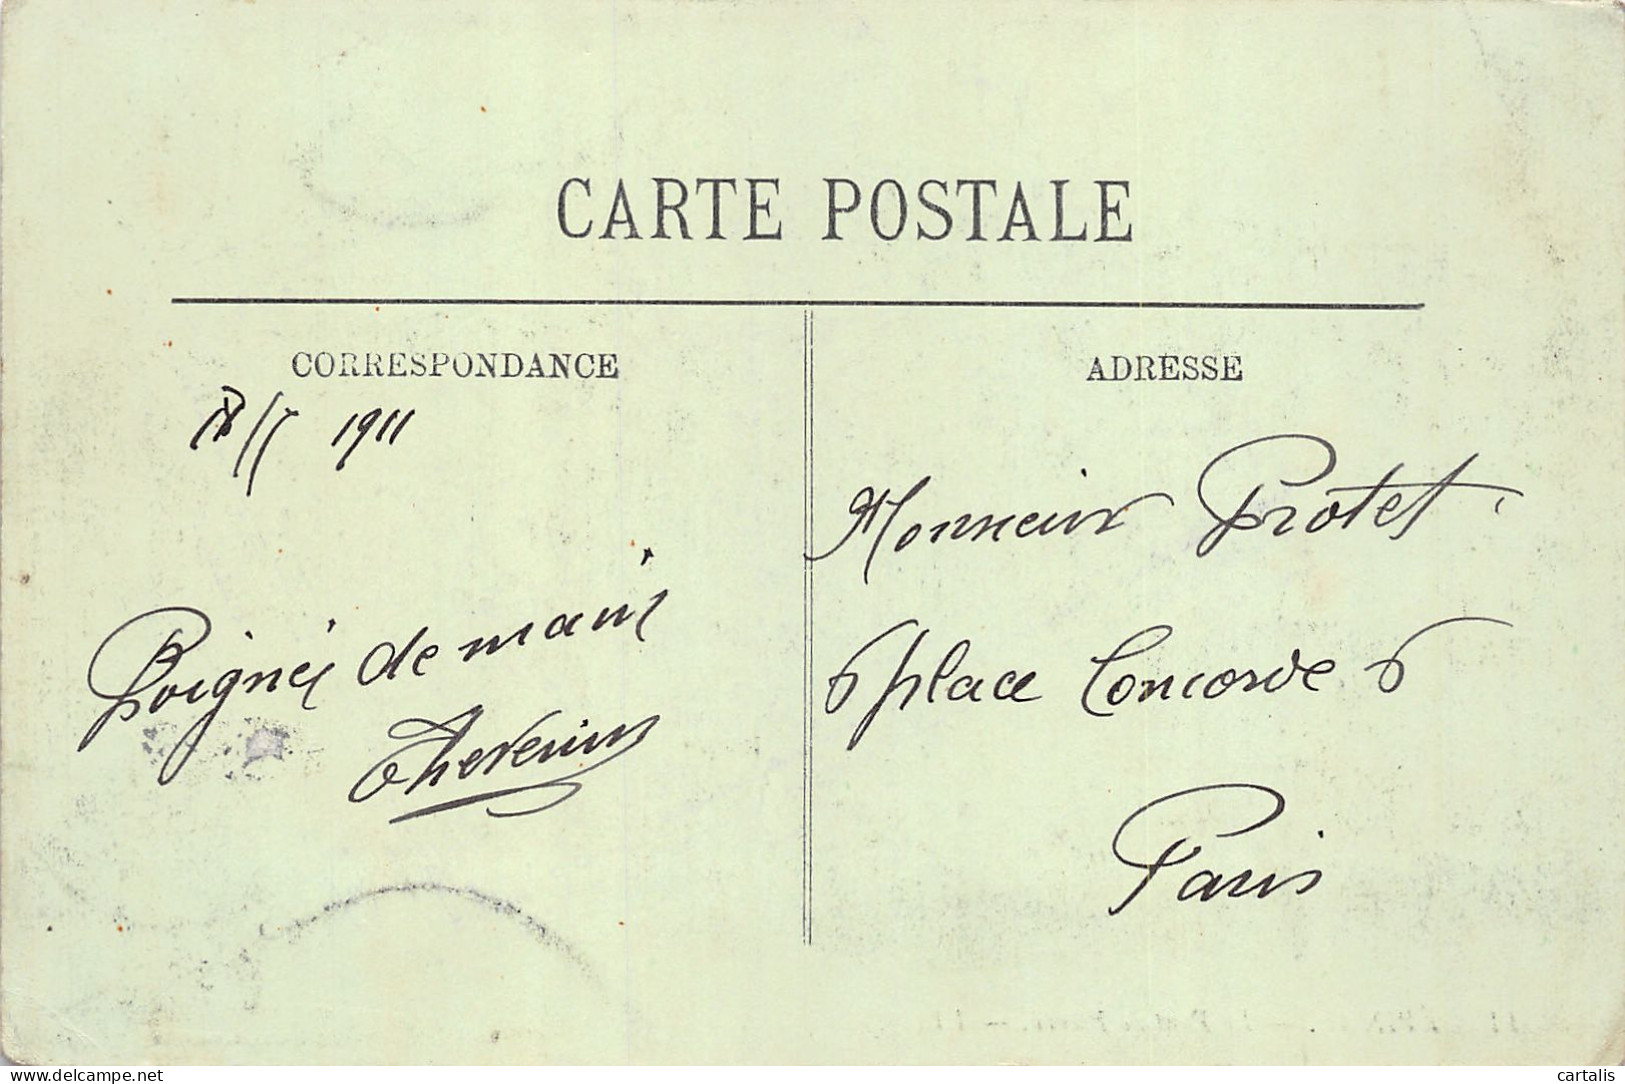 CARTE POSTALE
CORRESPONDANCE
1911
Poignés de mains
Thevenin
ADRESSE
Monsieur Protet
6 place Concorde 6
Paris
www.delcampe.net
cartalis